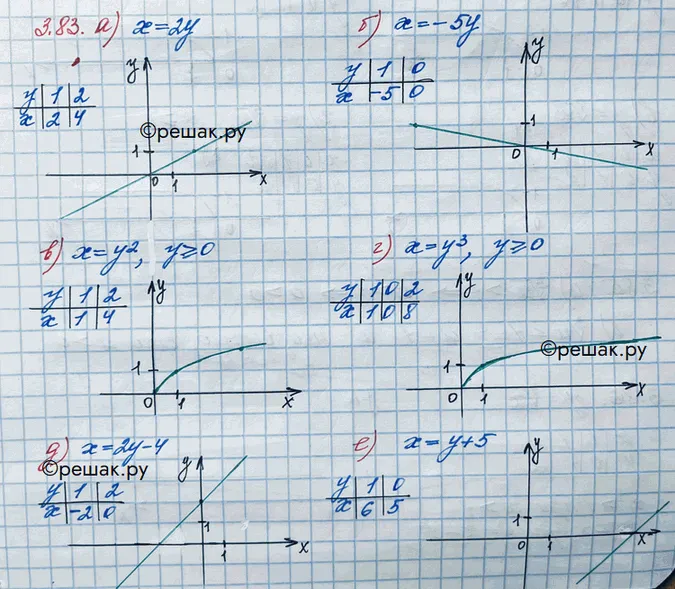 3.83. а) x=2y
y | 1 | 2
x | 2 | 4
y
©решак.ру
1
0 1 x
б) x=-5y
y | 1 | 0
x | -5 | 0
y
1
0 1 x
в) x=y², y≥0
y | 1 | 2
x | 1 | 4
y
1
0 1 x
г) x=y³, y≥0
y | 1 | 0 | 2
x | 1 | 0 | 8
y
©решак.ру
1
0 1 x
д) x=2y-4
©решак.ру
y | 1 | 2
x | -2 | 0
y
1
1 x
е) x=y+5
y | 1 | 0
x | 6 | 5
y
1
0 1 x